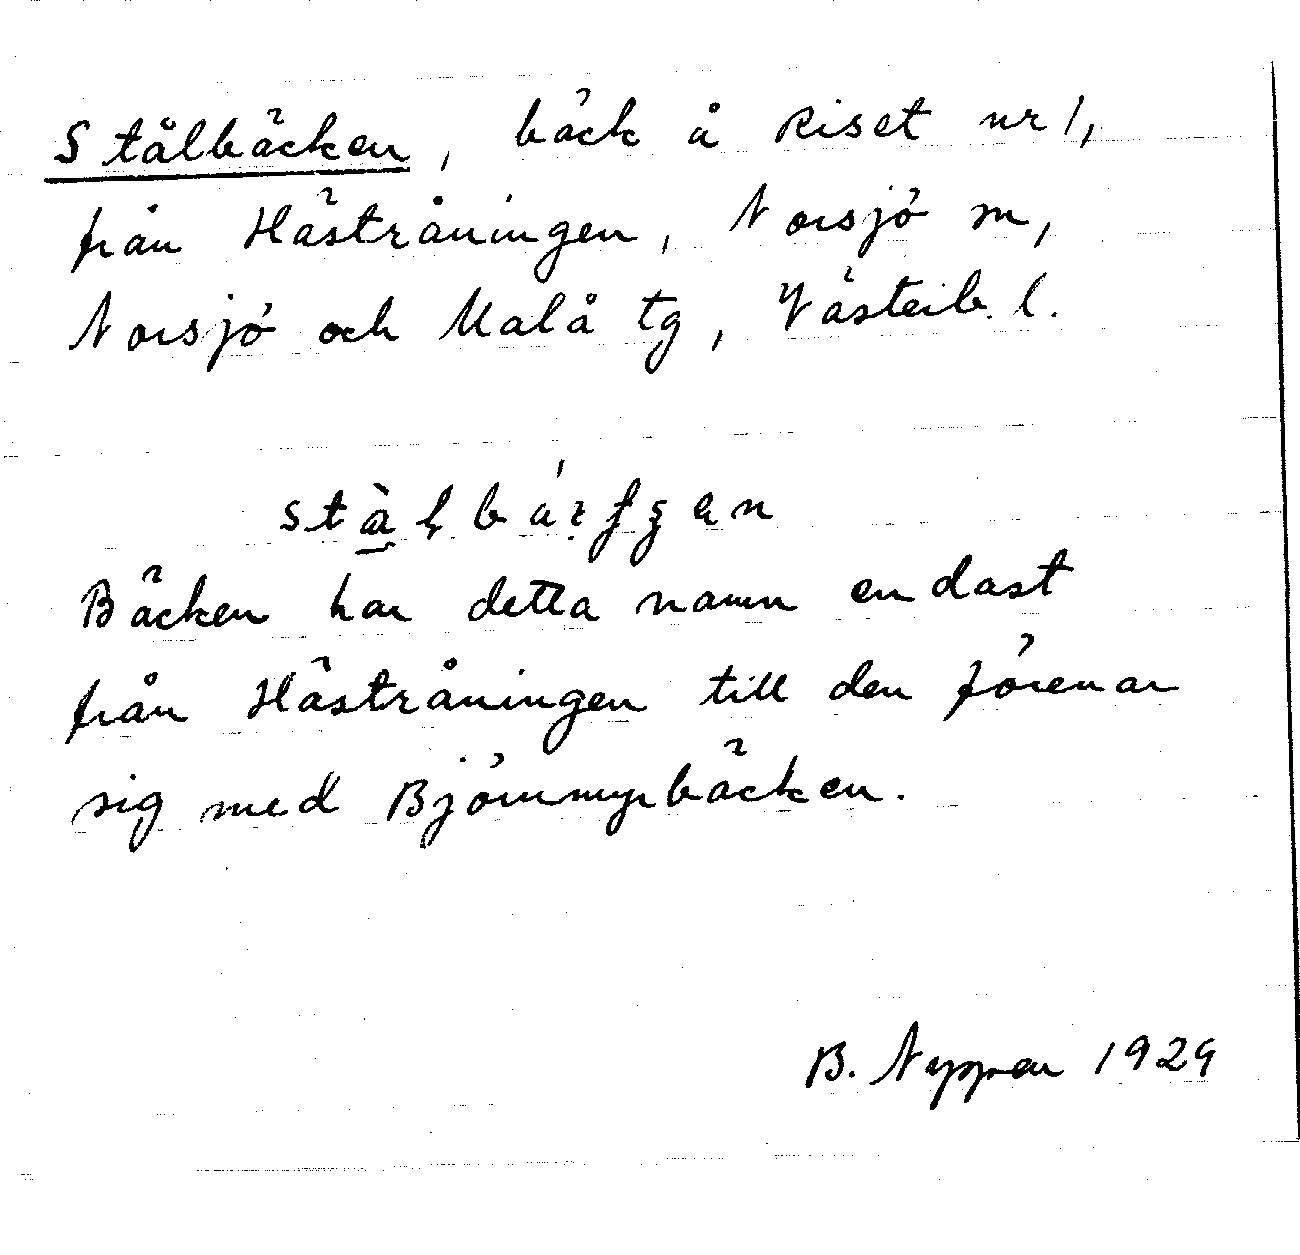 Stålbäcken, bäck å Riset nr 1,
från Hästråningen, Norsjö sn,
Norsjö och Malå tg, Västerb. l.
Bäcken har detta namn endast
från Hästråningen till den förenar
sig med Björnmyrbäcken.
B. Nyppen 1929